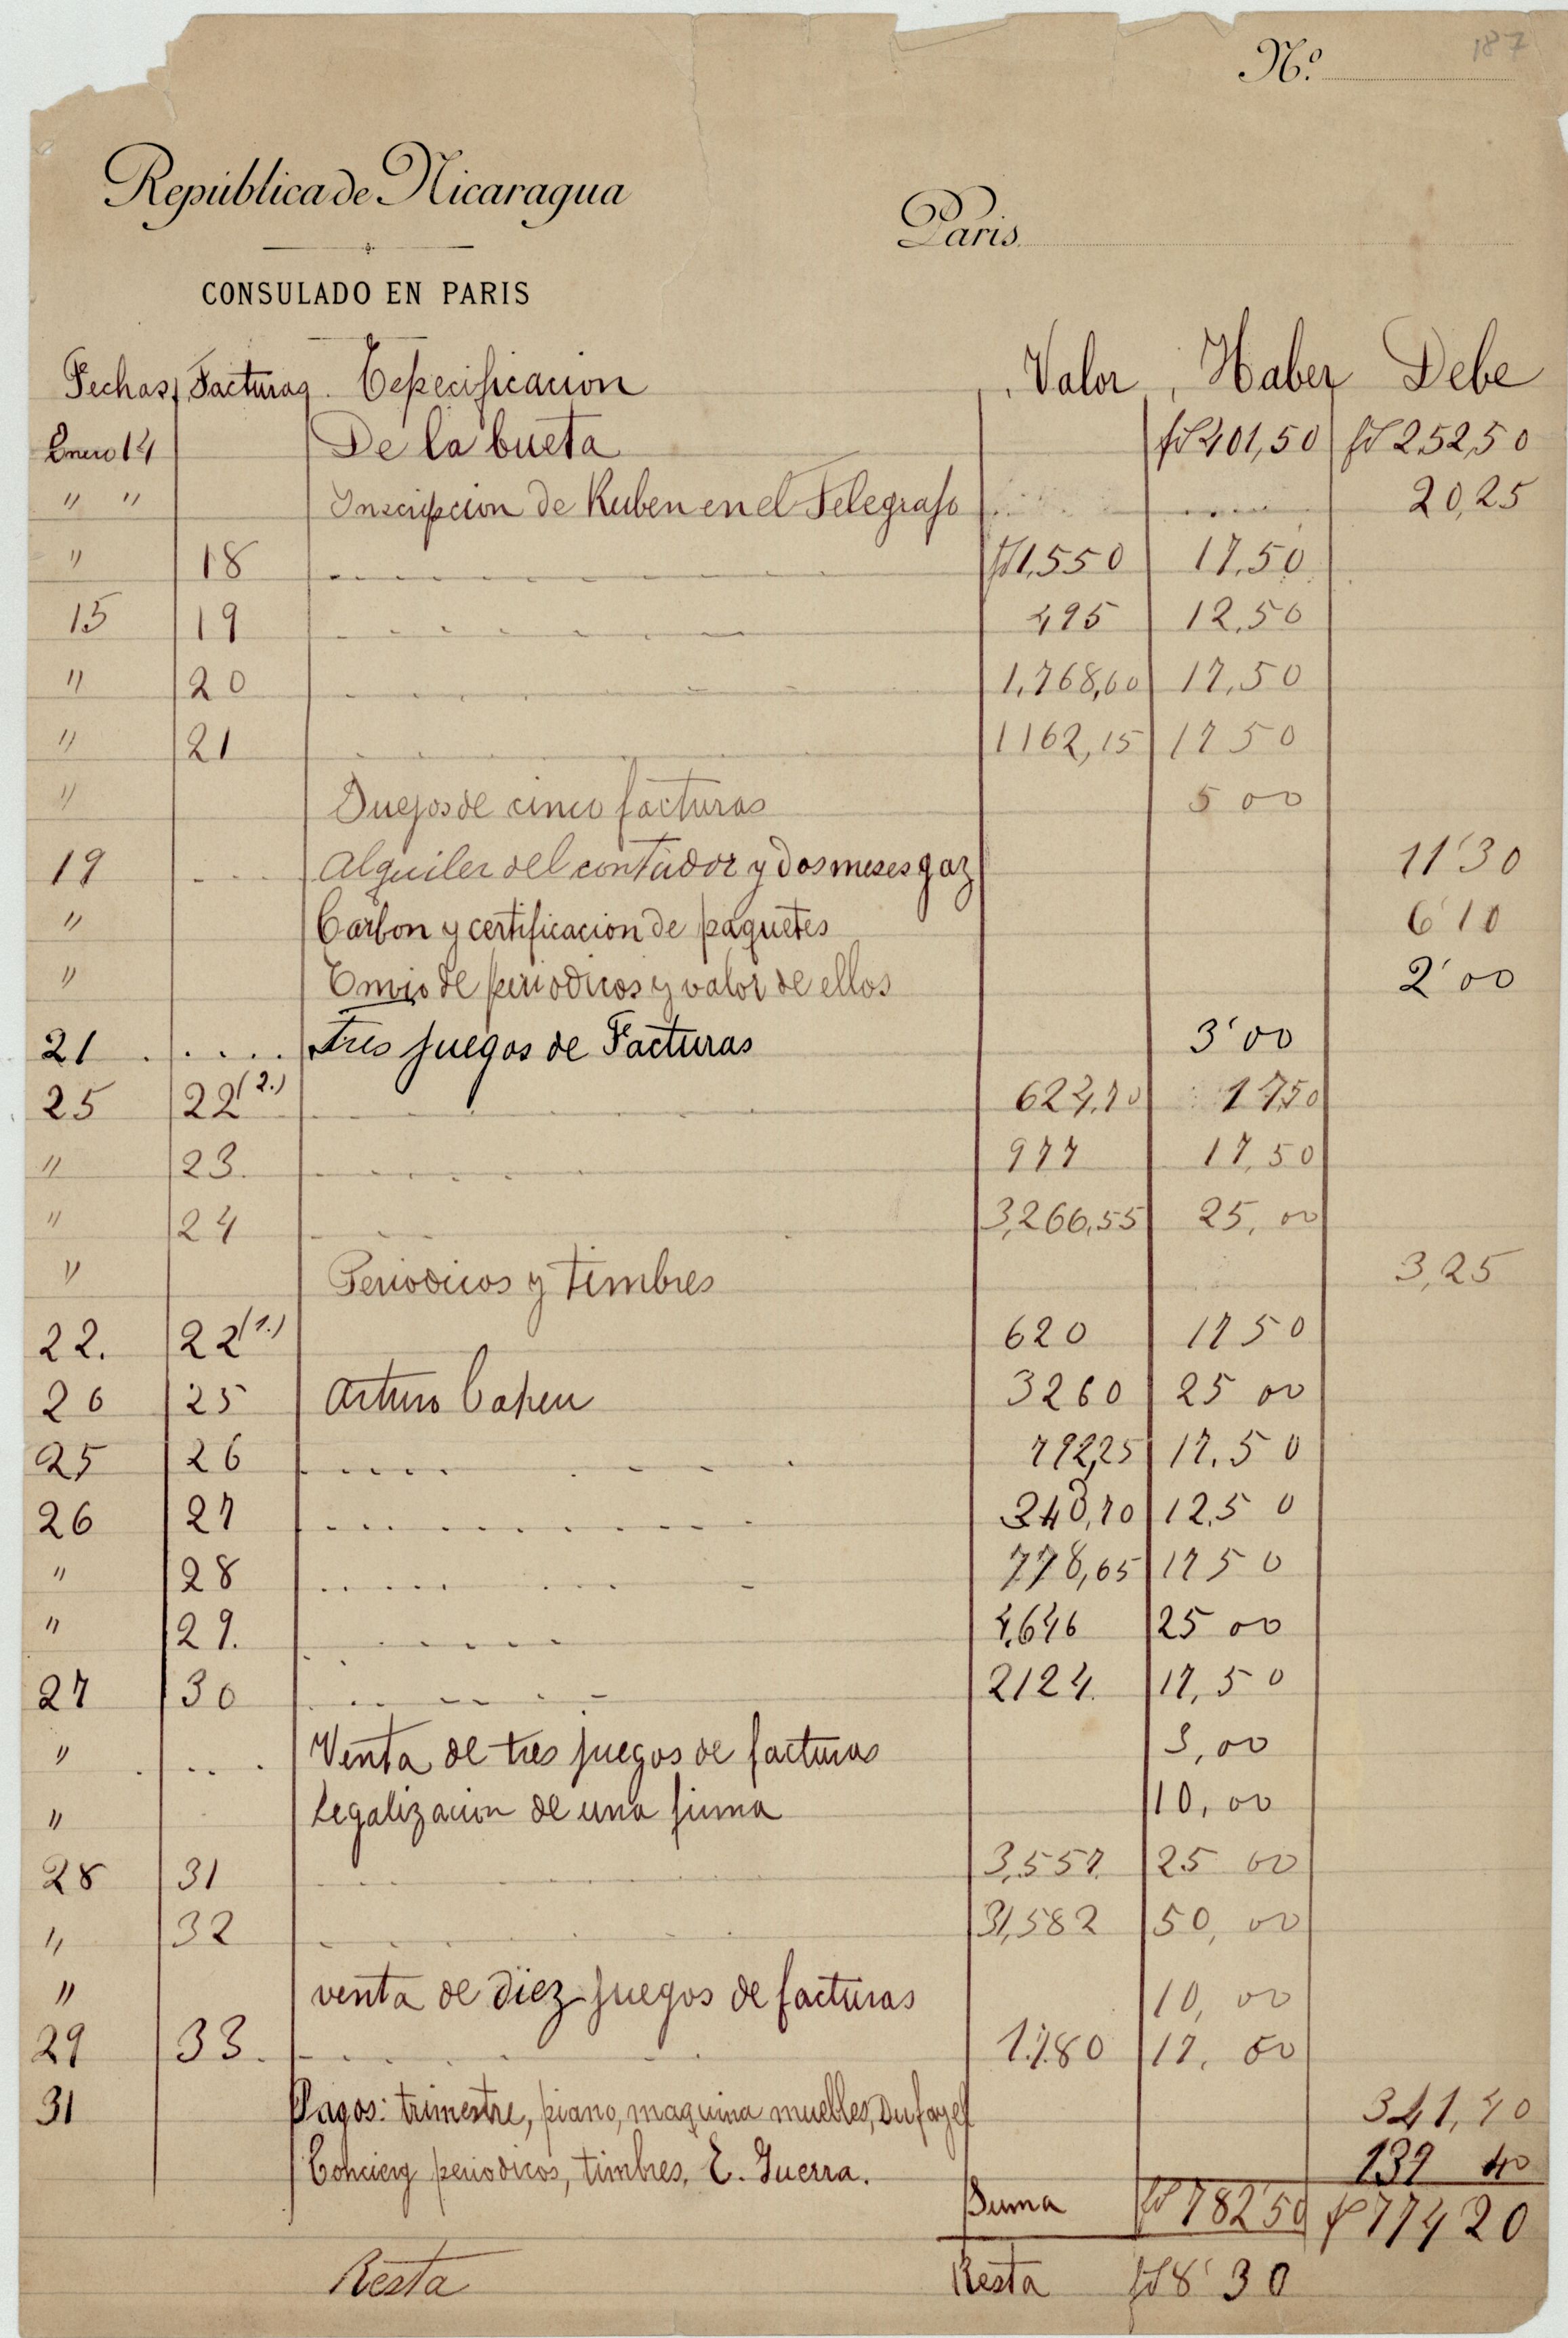 187
Nº
República de Nicaragua
Paris
CONSULADO EN PARIS
Fechas Facturas Especificacion Valor Haber Debe
Enero 14 De la bueta 401,50 252,50
" " Inscripcion de Ruben en el Telegrafo 20,25
" 18 1,550 17,50
15 19 495 12,50
" 20 1,768,60 17,50
" 21 1162,15 17 50
" Juegos de cinco facturas 5 00
19 Alquiler del contador y dos meses gaz 11'30
" Carbon y certificacion de paquetes 6'10
" Envio de periodicos y valor de ellos 2'00
21 Tres juegos de Facturas 3'00
25 22(2.) 624,70 17,50
" 23. 977 17,50
" 24 3,266,55 25,00
" Periodicos y timbres 3,25
22. 22(1.) 620 17 50
26 25 Arturo Cahen 3260 25 00
25 26 792,25 17,50
26 27 340,70 12,50
" 28 778,65 17 50
" 29. 4,646 25 00
27 30 2124. 17,50
" Venta de tres juegos de facturas 3,00
" Legalizacion de una firma 10,00
28 31 3,557 25 00
" 32 31,582 50,00
" venta de diez juegos de facturas 10,00
29 33. 1.780 17. 50
31 Pagos: trimestre, piano, maquina muebles, Dufayel 341,40
Concierg periodicos, timbres, E. Guerra. 137 40
Suma 782'50 774 20
Resta Resta 8'30